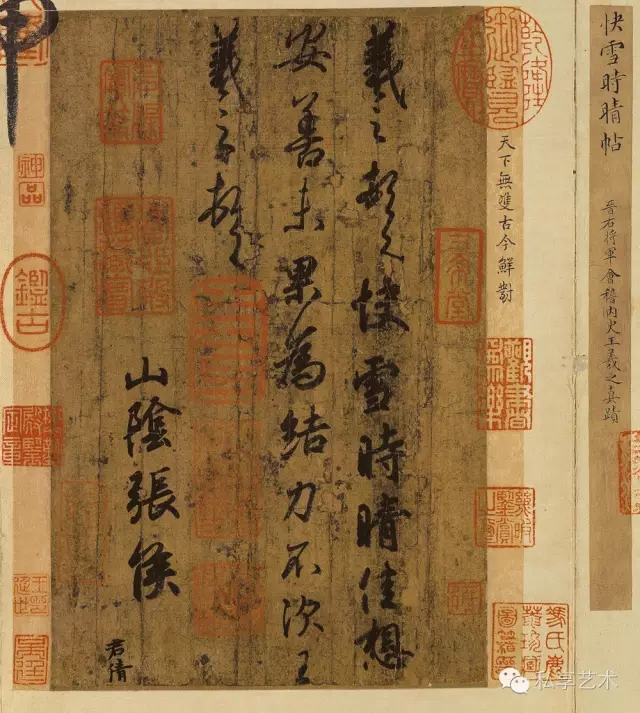 快雪時晴帖
晉右將軍會稽內史王羲之真蹟
天下無雙古今鮮對
羲之頓首快雪時晴佳想
安善未果為結力不次王
羲之頓首
山陰張侯
君倩
三希堂
神品
鑑古
私享艺术